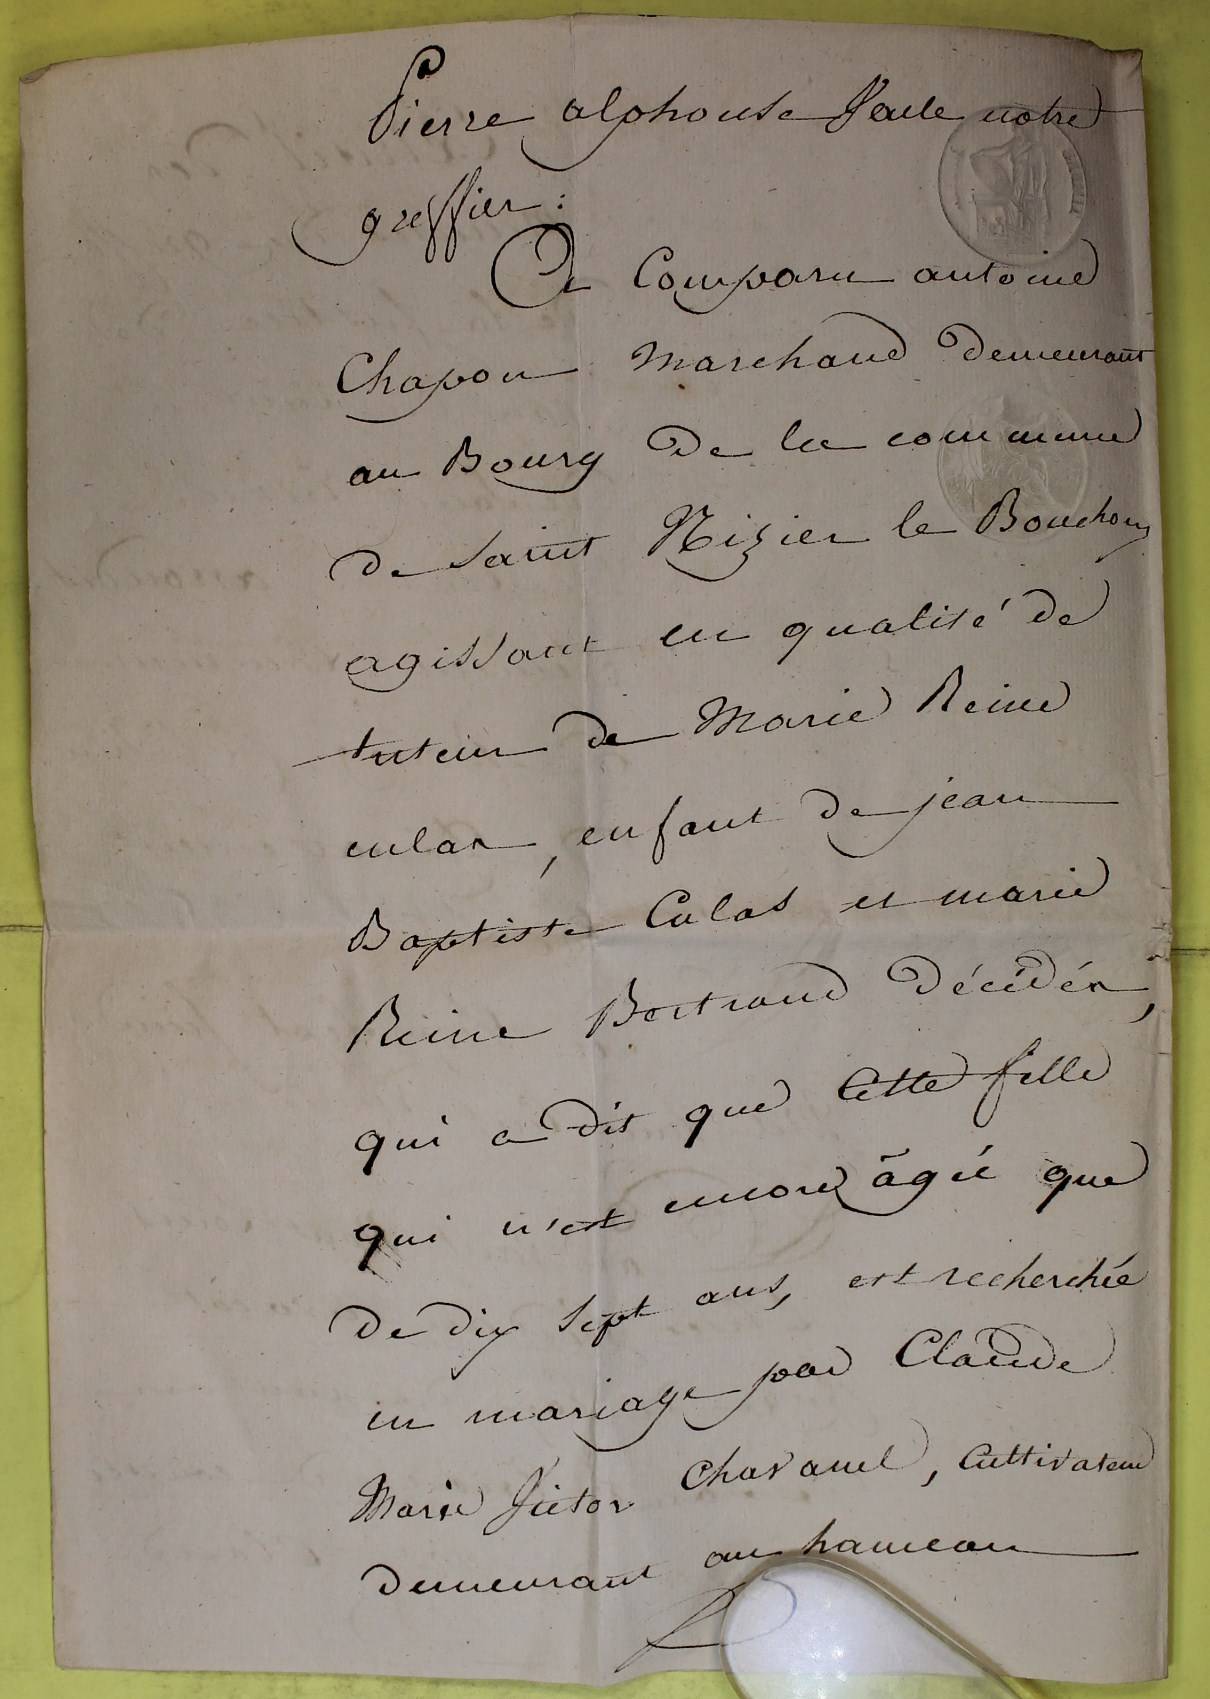 Pierre alphonse Faule notre
greffier :
A Comparu antoine
Chapon Marchand demeurant
au Bourg de la commune
de saint Nizier le Bouchoux
agissant en qualité de
tuteur de Marie Reine
culas, enfant de jean
Baptiste Culas et marie
Reine Bertrand décédés,
qui a dit que cette fille
qui n'est encore âgée que
de dix sept ans, est recherchée
en mariage par Claude
Marie Victor Chavanel, cultivateur
demeurant au hameau